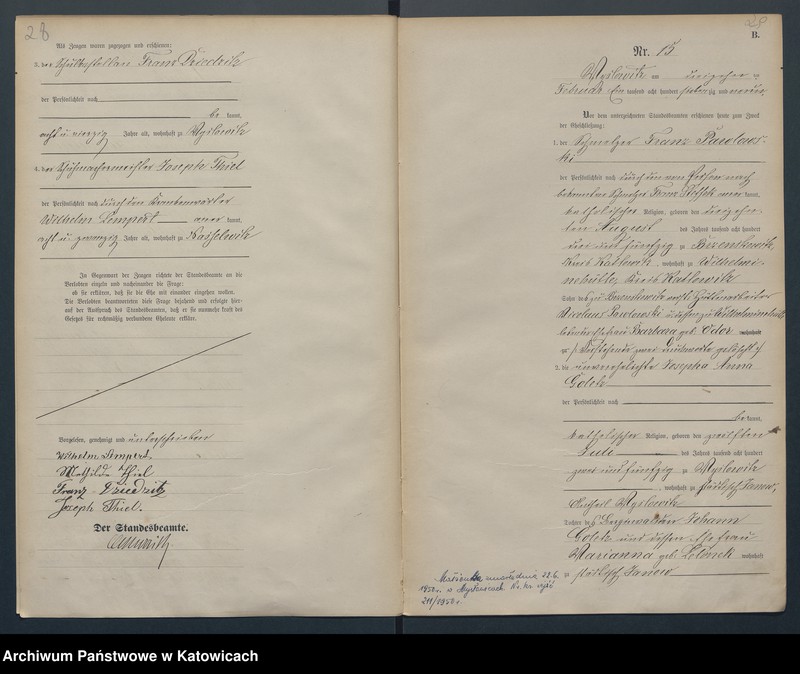 28
Als Zeugen waren zugezogen und erschienen:
3. der Schulkastellan Franz Driedritz
der Persönlichkeit nach
be kannt,
acht u. vierzig Jahre alt, wohnhaft zu Myslowitz
4. der Schuhmachermeister Joseph Thiel
der Persönlichkeit nach durch den Krankenwärter
Wilhelm Lempert aner kannt,
acht u. zwanzig Jahre alt, wohnhaft zu
In Gegenwart der Zeugen richtete der Standesbeamte an die
Verlobten einzeln und nacheinander die Frage:
ob sie erklären, daß sie die Ehe mit einander eingehen wollen.
Die Verlobten beantworteten diese Frage bejahend und erfolgte hier-
auf der Ausspruch des Standesbeamten, daß er sie nunmehr kraft des
Gesetzes für rechtmäßig verbundene Eheleute erkläre.
Vorgelesen, genehmigt und unterschrieben
Wilhelm Lempert.
Mathilde Thiel
Franz Driedritz
Joseph Thiel.
Der Standesbeamte.
29
B.
Nr. 15
Myslowitz am dreizehn
Februar Ein tausend acht hundert siebenzig und neun,
Vor dem unterzeichneten Standesbeamten erschienen heute zum Zweck
der Eheschließung:
1. der Schmelzer Franz Pawlows-
ki
der Persönlichkeit nach durch den von Person nach
bekannten Schmelzer Franz aner kannt,
katholischer Religion, geboren den dreizehn
ten August des Jahres tausend acht hundert
drei und fünfzig zu
Kreis Kattowitz, wohnhaft zu Wilhelmi-
nehütte, Kreis Kattowitz
Sohn des zu
Nicolaus Pawlowski u. dessen zu Wilhelminehütte
Barbara geb. Odor wohnhaft
zu /: Vorstehende zwei Druckworte gelöscht :/
2. die unverehelichte Josepha Anna
Golek
der Persönlichkeit nach
be kannt,
katholischer Religion, geboren den zwölften
Juli des Jahres tausend acht hundert
zwei und fünfzig zu Myslowitz
, wohnhaft zu städtisch Janow,
Myslowitz
Tochter des Johann
Golek und dessen Ehefrau
Marianna geb. wohnhaft
zu städtisch Janow
22.6.
1950 r. w Mysłowicach
211/1950 r.
Archiwum Państwowe w Katowicach